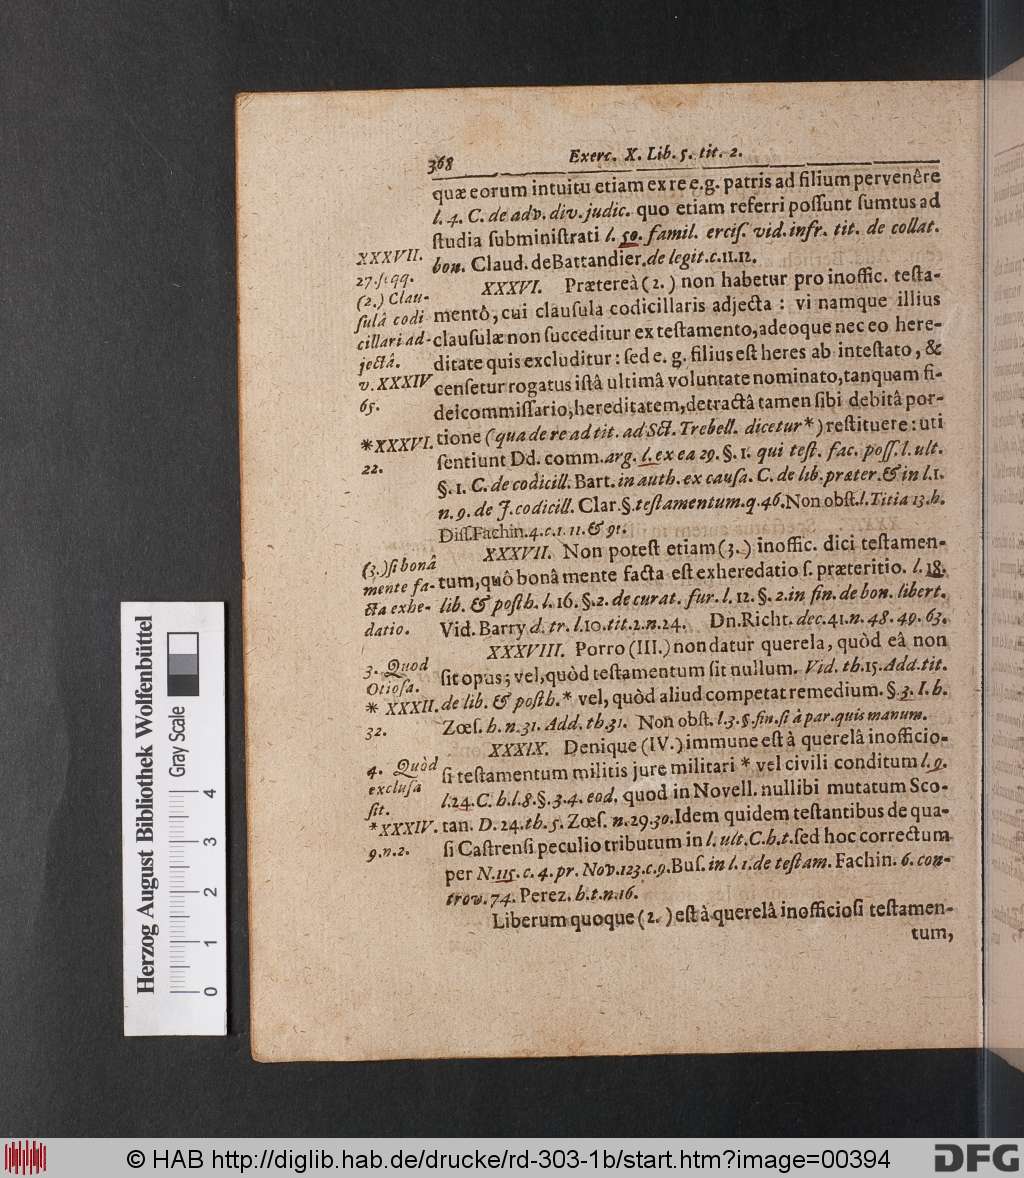 368 Exerc. X. Lib. 5. tit. 2.
quæ eorum intuitu etiam ex re e.g. patris ad filium pervenêre
l. 4. C. de adv. div. judic. quo etiam referri poſſunt ſumtus ad
ſtudia ſubminiſtrati l. 50. famil. erciſ. vid. infr. tit. de collat.
bon. Claud. de Battandier. de legit. c. 11. 12.
XXXVI. Prætereà (2.) non habetur pro inoffic. teſta-
mentô, cui clauſula codicillaris adjecta : vi namque illius
clauſulæ non ſucceditur ex teſtamento, adeoque nec eo here-
ditate quis excluditur : ſed e. g. filius eſt heres ab inteſtato, &
cenſetur rogatus iſtâ ultimâ voluntate nominato, tanquam fi-
deicommiſſario, hereditatem, detractâ tamen ſibi debitâ por-
tione (qua de re ad tit. ad Sct. Trebell. dicetur *) reſtituere : uti
ſentiunt Dd. comm. arg. l. ex ea 29. §. 1. qui teſt. fac. poſſ. l. ult.
§. 1. C. de codicill. Bart. in auth. ex cauſa. C. de lib. præter. & in l. 1.
n. 9. de J. codicill. Clar. §. teſtamentum. q. 46. Non obſt. l. Titia 13. h.
Diſſ. Fachin. 4. c. 1. 11. & 91.
XXXVII. Non poteſt etiam (3.) inoffic. dici teſtamen-
tum, quô bonâ mente facta eſt exheredatio ſ. præteritio. l. 18.
lib. & poſth. l. 16. §. 2. de curat. fur. l. 12. §. 2. in fin. de bon. libert.
Vid. Barry d. tr. l. 10. tit. 2. n. 24. Dn. Richt. dec. 41. n. 48. 49. 63.
XXXVIII. Porro (III.) non datur querela, quòd eâ non
ſit opus; vel, quòd teſtamentum ſit nullum. Vid. th. 15. Add. tit.
de lib. & poſth. * vel, quòd aliud competat remedium. §. 3. I. h.
Zœſ. h. n. 31. Add. th. 31. Non obſt. l. 3. §. fin. ſi à par. quis manum.
XXXIX. Denique (IV.) immune eſt à querelâ inofficio-
ſi teſtamentum militis jure militari * vel civili conditum l. 9.
l. 24. C. h. l. 8. §. 3. 4. eod. quod in Novell. nullibi mutatum Sco-
tan. D. 24. th. 5. Zœſ. n. 29. 30. Idem quidem teſtantibus de qua-
ſi Caſtrenſi peculio tributum in l. ult. C. h. t. ſed hoc correctum
per N. 115. c. 4. pr. Nov. 123. c. 9. Buſ. in l. 1. de teſtam. Fachin. 6. con-
trov. 74. Perez. h. t. n. 16.
Liberum quoque (2.) eſt à querelâ inofficioſi teſtamen-
tum,
XXXVII.
27. ſeqq.
(2.) Clau-
ſulâ codi
cillari ad-
jectâ.
v. XXXIV
65.
*XXXVI.
22.
(3.) ſi bonâ
mente fa-
cta exhe-
datio.
3. Quod
Otioſa.
* XXXII.
32.
4. Quòd
excluſa
ſit.
*XXXIV.
9. n. 2.
Herzog August Bibliothek Wolfenbüttel
Gray Scale
0 1 2 3 4
© HAB http://diglib.hab.de/drucke/rd-303-1b/start.htm?image=00394
DFG